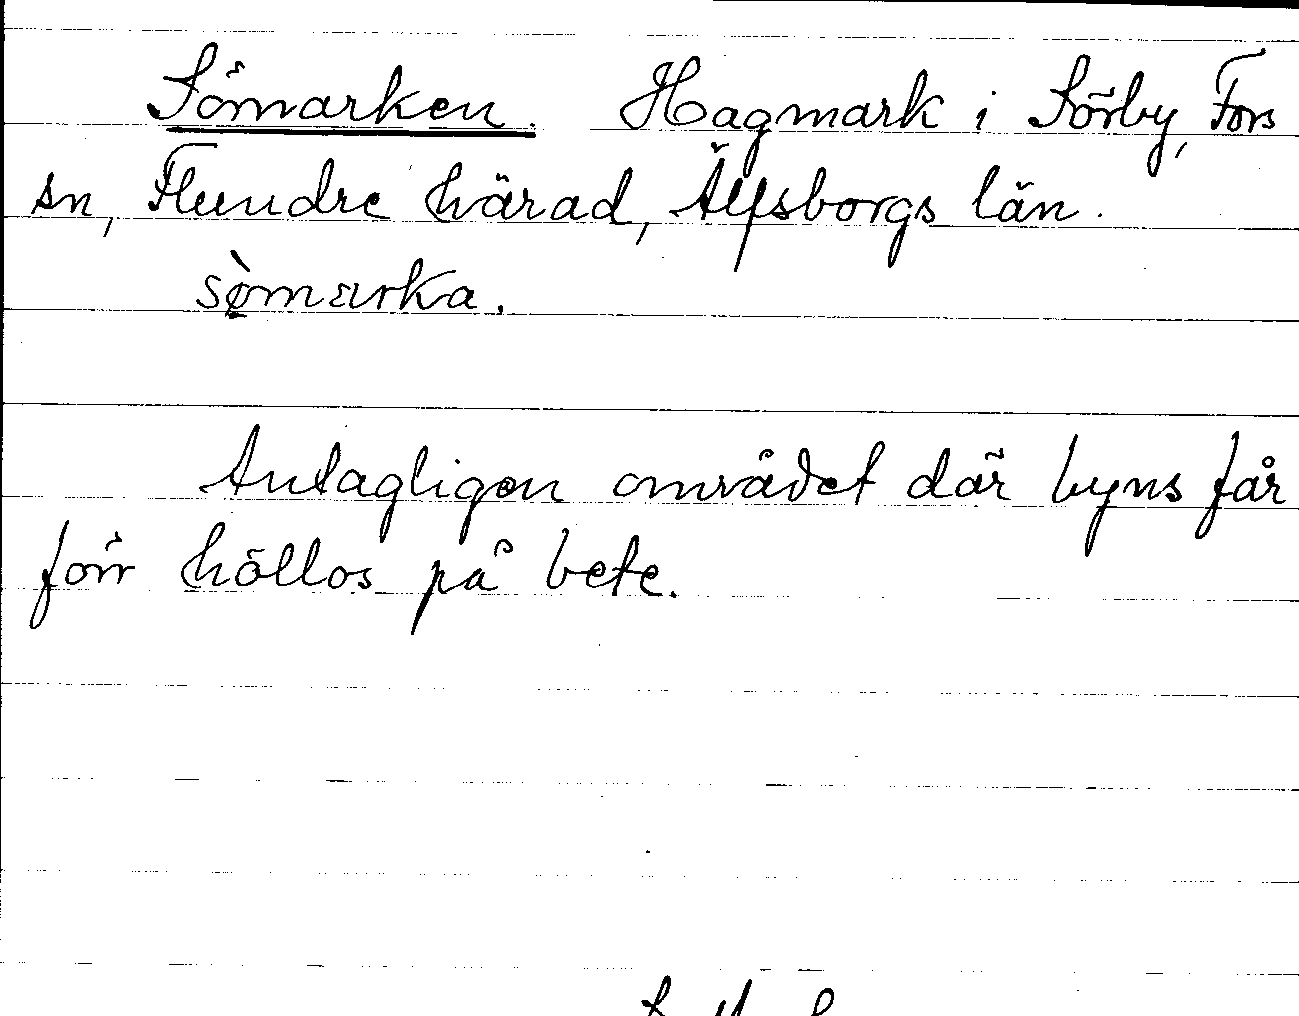 Sömarken. Hagmark i Sörby, Fors
sn, Flundre härad, Älfsborgs län.
sø̀marka.
Antagligen området där byns får
förr höllos på bete.